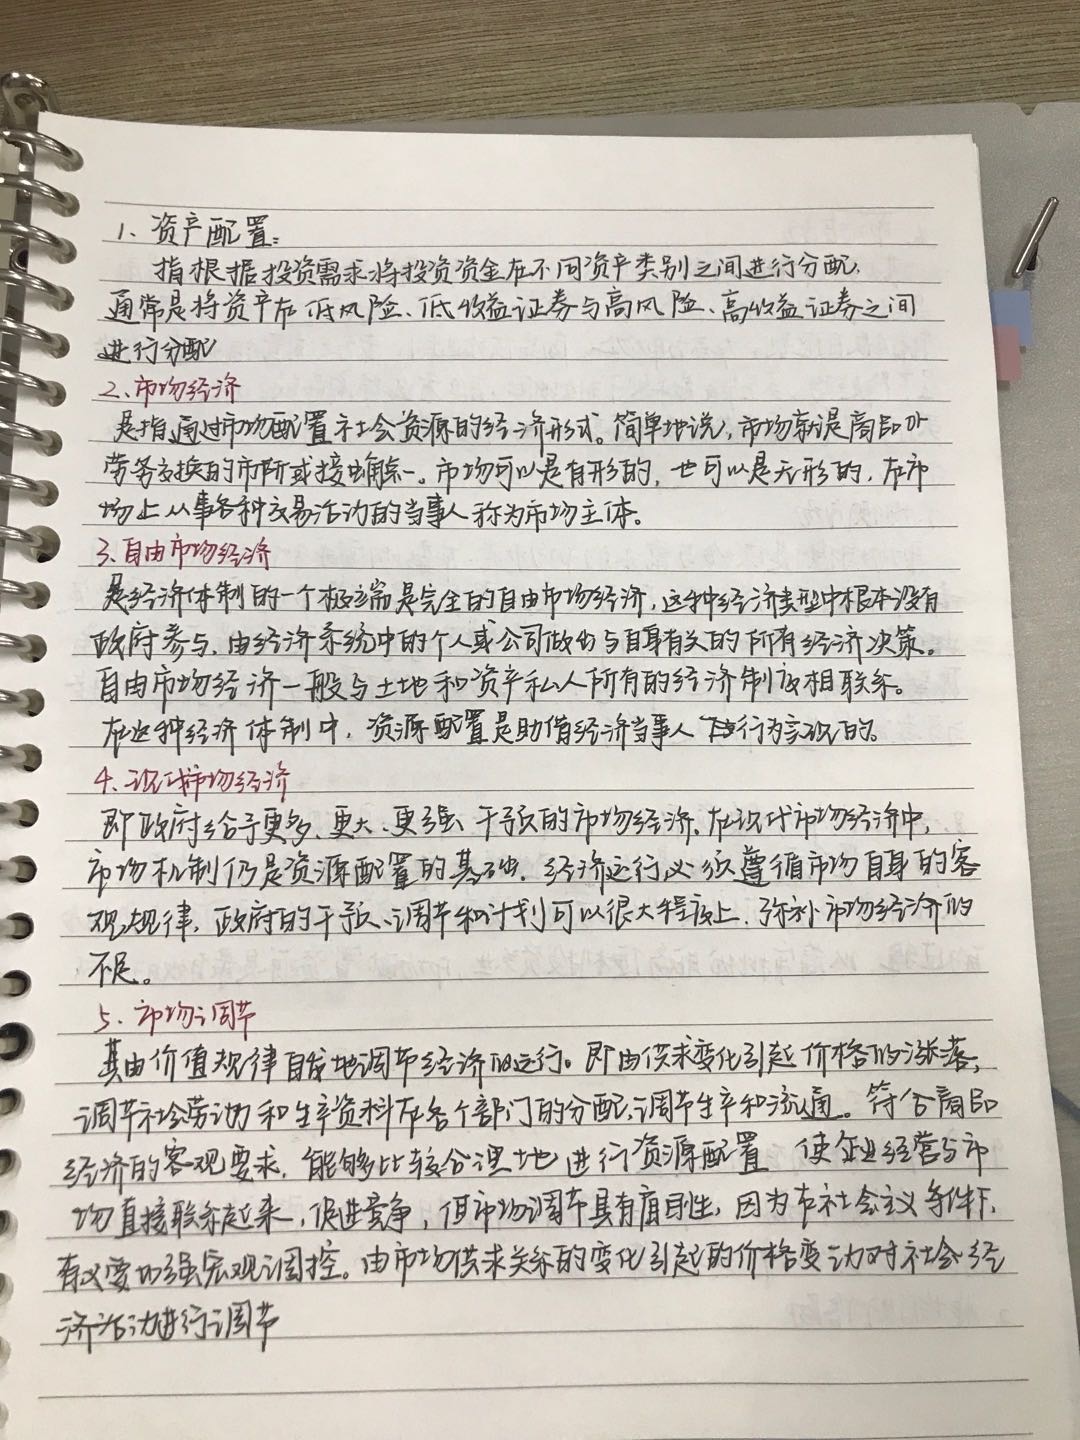 1、资产配置:
指根据投资需求将投资资金在不同资产类别之间进行分配,
通常是将资产在低风险、低收益证券与高风险、高收益证券之间
进行分配
2、市场经济
是指通过市场配置社会资源的经济形式。简单地说,市场就是商品
劳务交换的市所或接触点。市场可以是有形的,也可以是无形的,在市
场上从事各种交易活动的当事人称为市场主体。
3、自由市场经济
是经济体制的一个极端是完全的自由市场经济,这种经济类型中根本没有
政府参与,由经济系统中的个人或公司做出与自身有关的所有经济决策。
自由市场经济一般与土地和资产私人所有的经济制度相联系。
在这种经济体制中,资源配置是助借经济当事人 行为实现的。
4、现代市场经济
即政府给予更多、更大、更强干预的市场经济,在现代市场经济中,
市场机制仍是资源配置的基础,经济运行必须遵循市场自身的客
观规律,政府的干预、调节和计划可以很大程度上,弥补市场经济的
不足。
5、市场调节
其由价值规律自发地调节经济的运行。即由供求变化引起价格的涨落,
调节社会劳动和生产资料在各个部门的分配,调节生产和流通。符合商品
经济的客观要求,能够比较合理地进行资源配置 使企业经营与市
场直接联系起来,促进竞争,但市场调节具有盲目性,因为在社会主义条件下,
有必要加强宏观调控。由市场供求关系的变化引起的价格变动对社会经
济活动进行调节